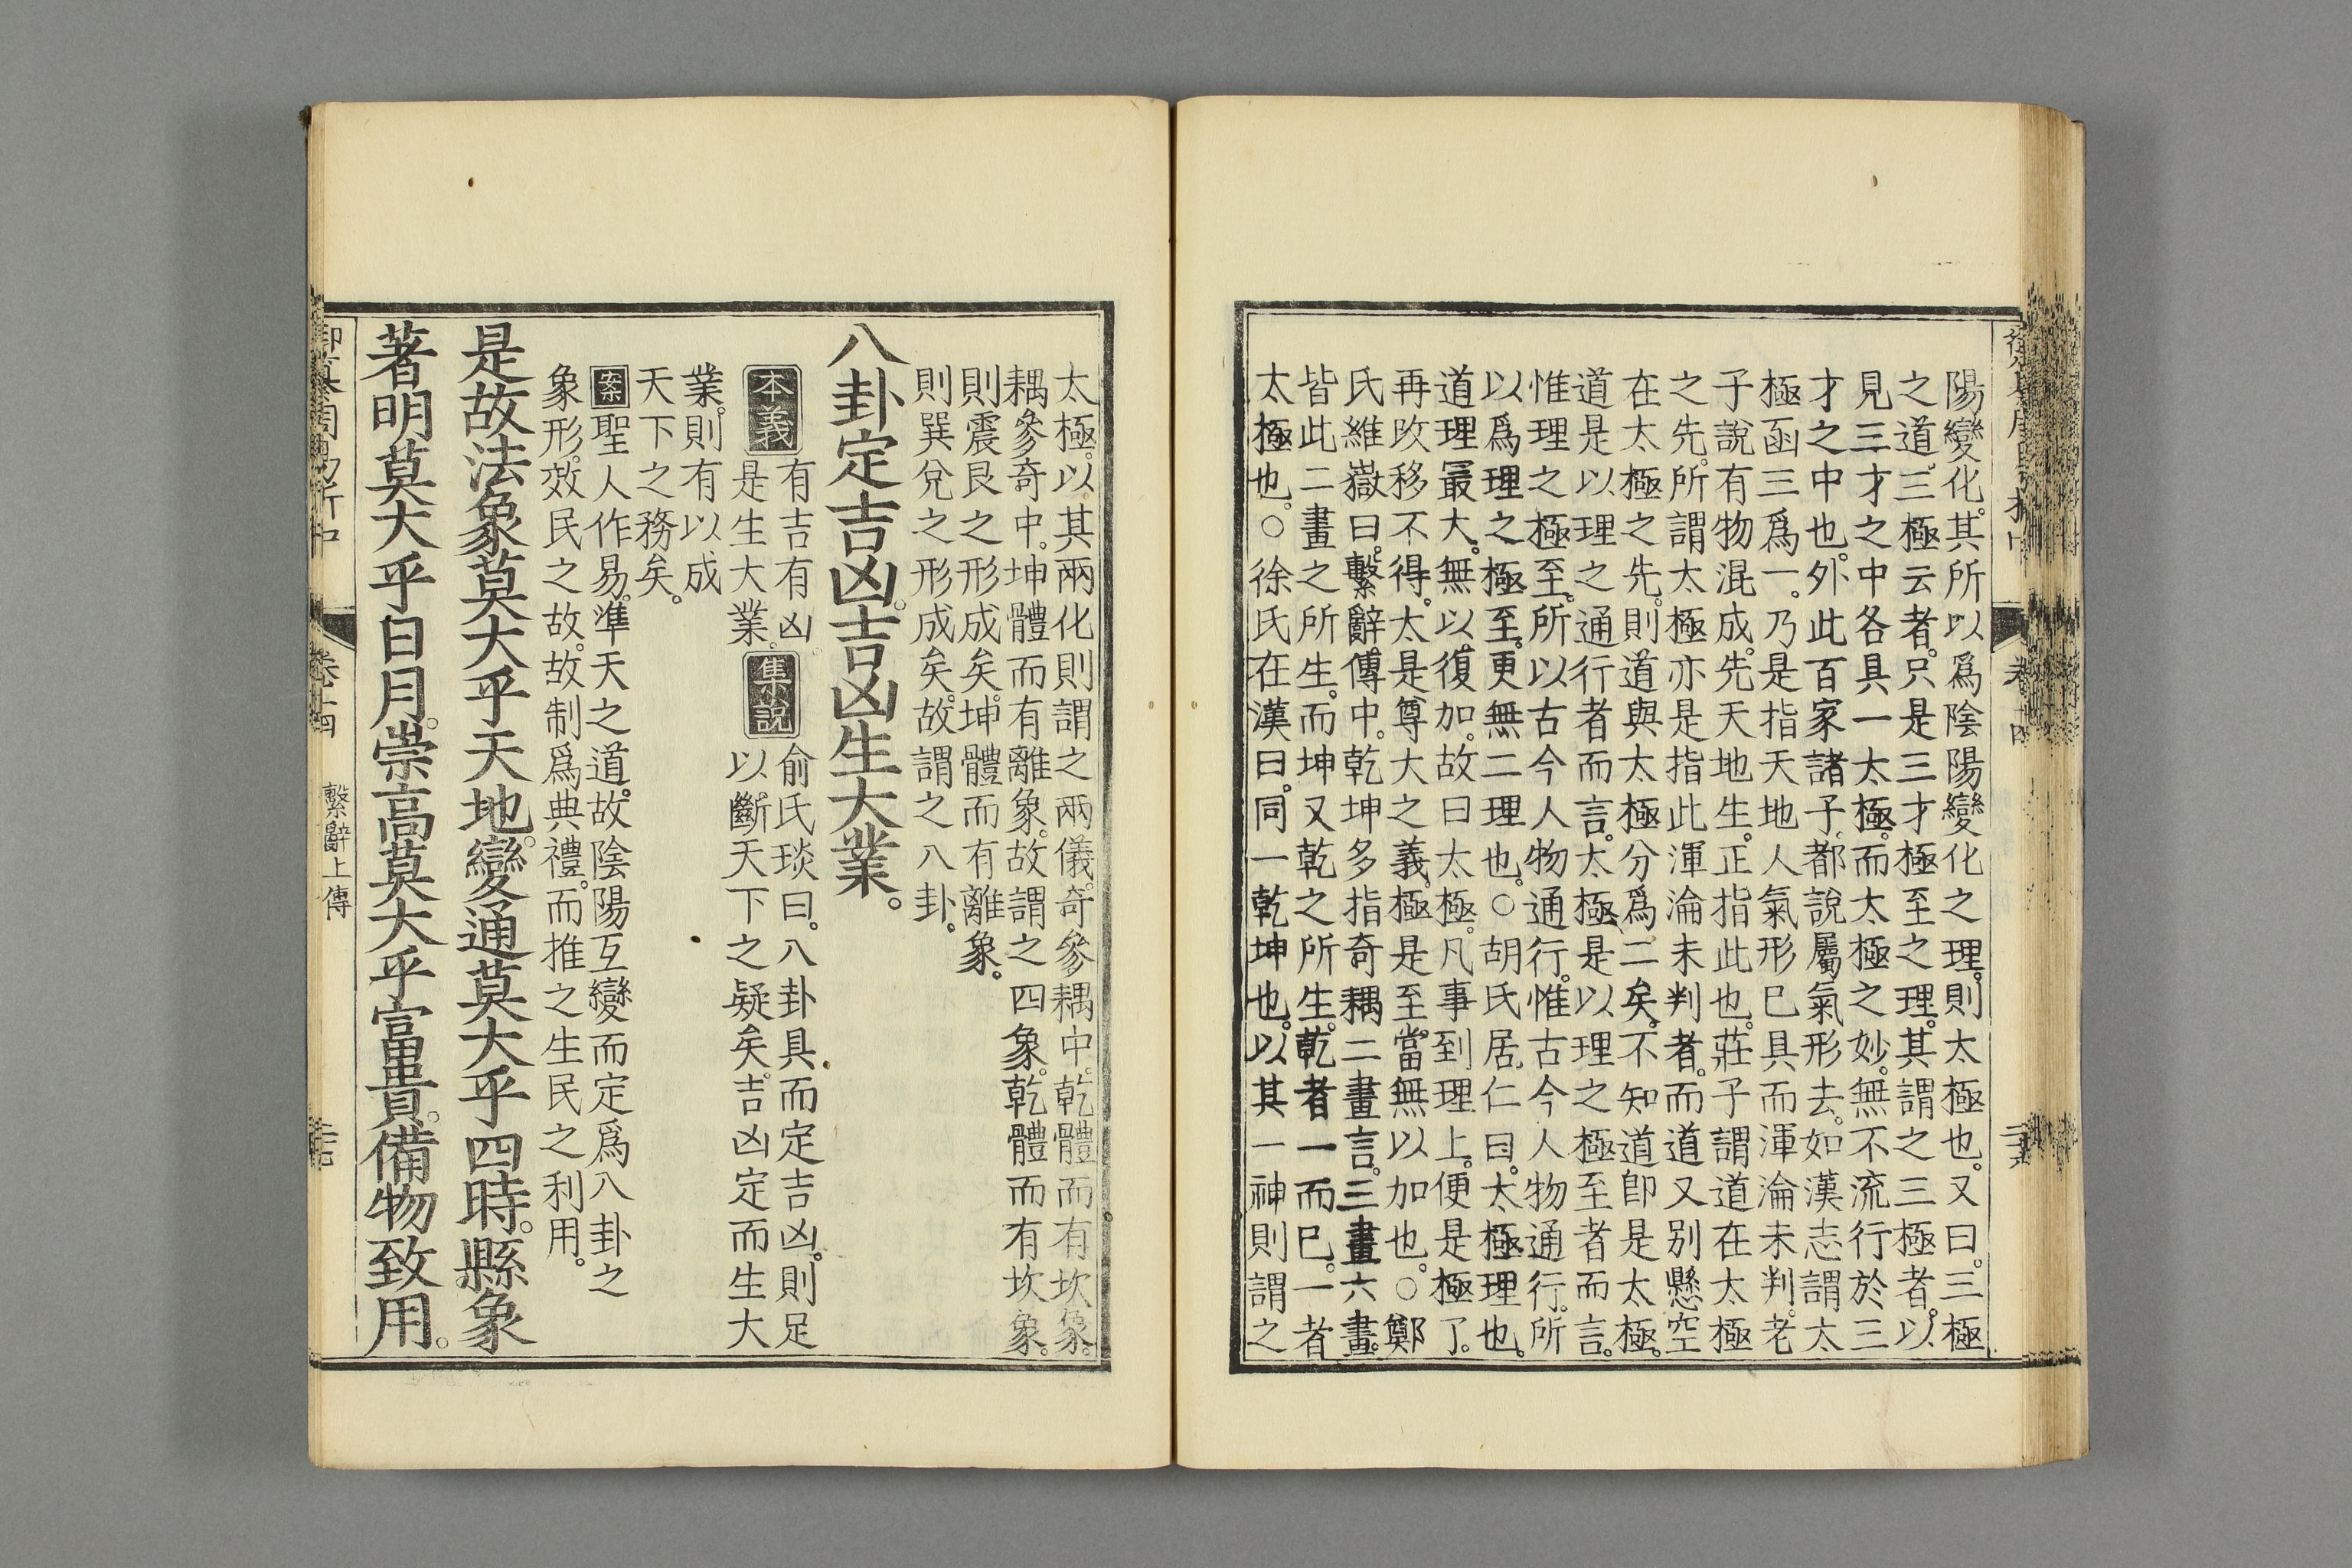 陽變化。其所以爲陰陽變化之理。則太極也。又曰。三極
之道。三極云者。只是三才極至之理。其謂之三極者。以
見三才之中各具一太極。而太極之妙。無不流行於三
才之中也。外此百家諸子。都說屬氣形去。如漢志謂太
極函三爲一。乃是指天地人氣形已具而渾淪未判。老
子說有物混成。先天地生。正指此也。莊子謂道在太極
之先。所謂太極亦是指此渾淪未判者。而道又別懸空
在太極之先。則道與太極分爲二矣。不知道卽是太極。
道是以理之通行者而言。太極是以理之極至者而言。
惟理之極至。所以古今人物通行。惟古今人物通行。所
以爲理之極至。更無二理也。○胡氏居仁曰。太極理也。
道理最大。無以復加。故曰太極。凡事到理上。便是極了。
再改移不得。太是尊大之義。極是至當無以加也。○鄭
氏維嶽曰。繫辭傳中。乾坤多指奇耦二畫言。三畫六畫。
皆此二畫之所生。而坤又乾之所生。乾者一而已。一者
太極也。○徐氏在漢曰。同一乾坤也。以其一神則謂之
太極。以其兩化則謂之兩儀。奇參耦中。乾體而有坎象。
耦參奇中。坤體而有離象。故謂之四象。乾體而有坎象。
則震艮之形成矣。坤體而有離象。
則巽兌之形成矣。故謂之八卦。
八卦定吉凶。吉凶生大業。
本義 有吉有凶
是生大業。
集說 俞氏琰曰。八卦具而定吉凶。則足
以斷天下之疑矣。吉凶定而生大
業。則有以成
天下之務矣。
案聖人作易。準天之道。故陰陽互變而定爲八卦之
象形。效民之故。故制爲典禮。而推之生民之利用。
是故法象莫大乎天地。變通莫大乎四時。縣象
著明莫大乎日月。崇高莫大乎富貴。備物致用。
繫辭上傳